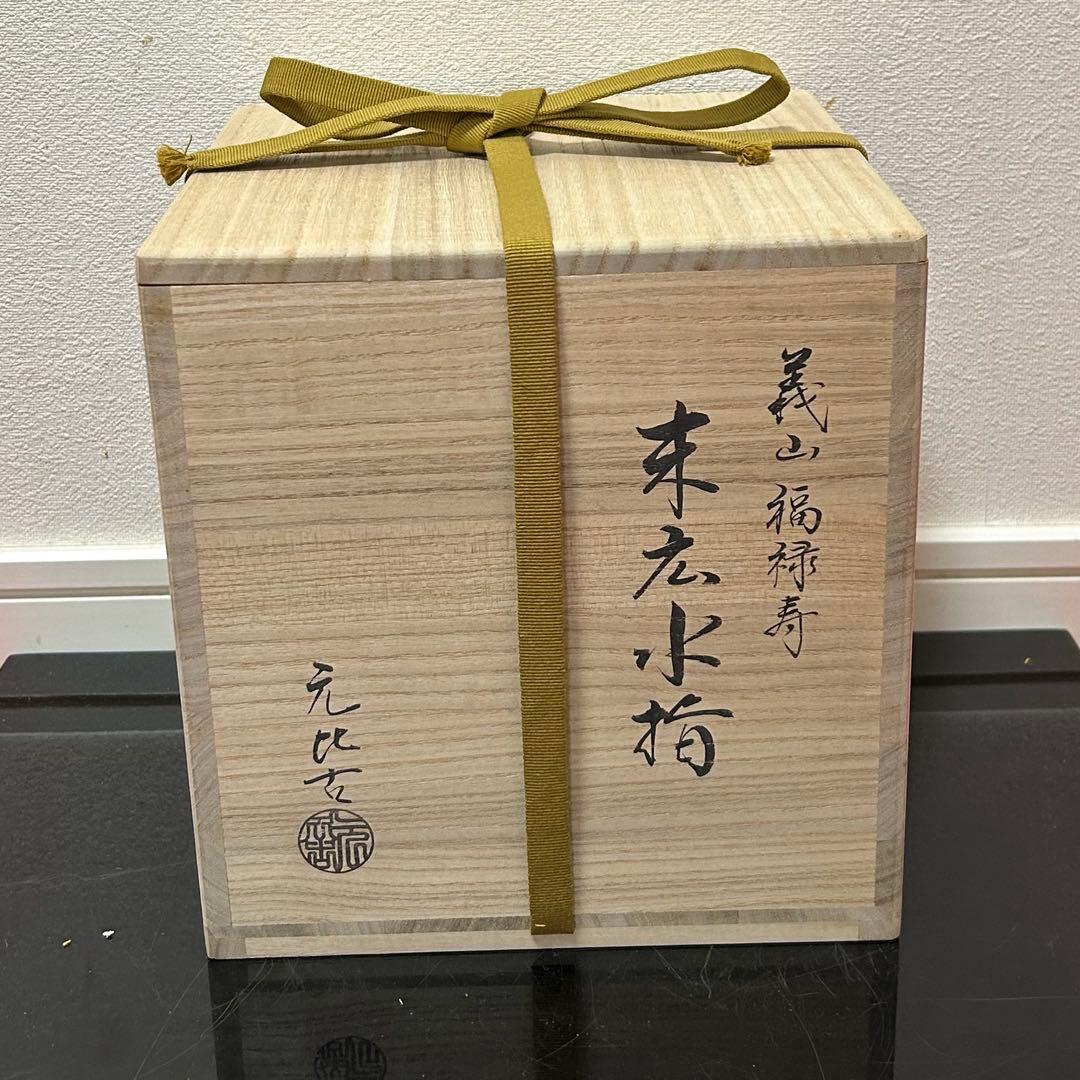 義山 福禄寿
末広水指
元比古